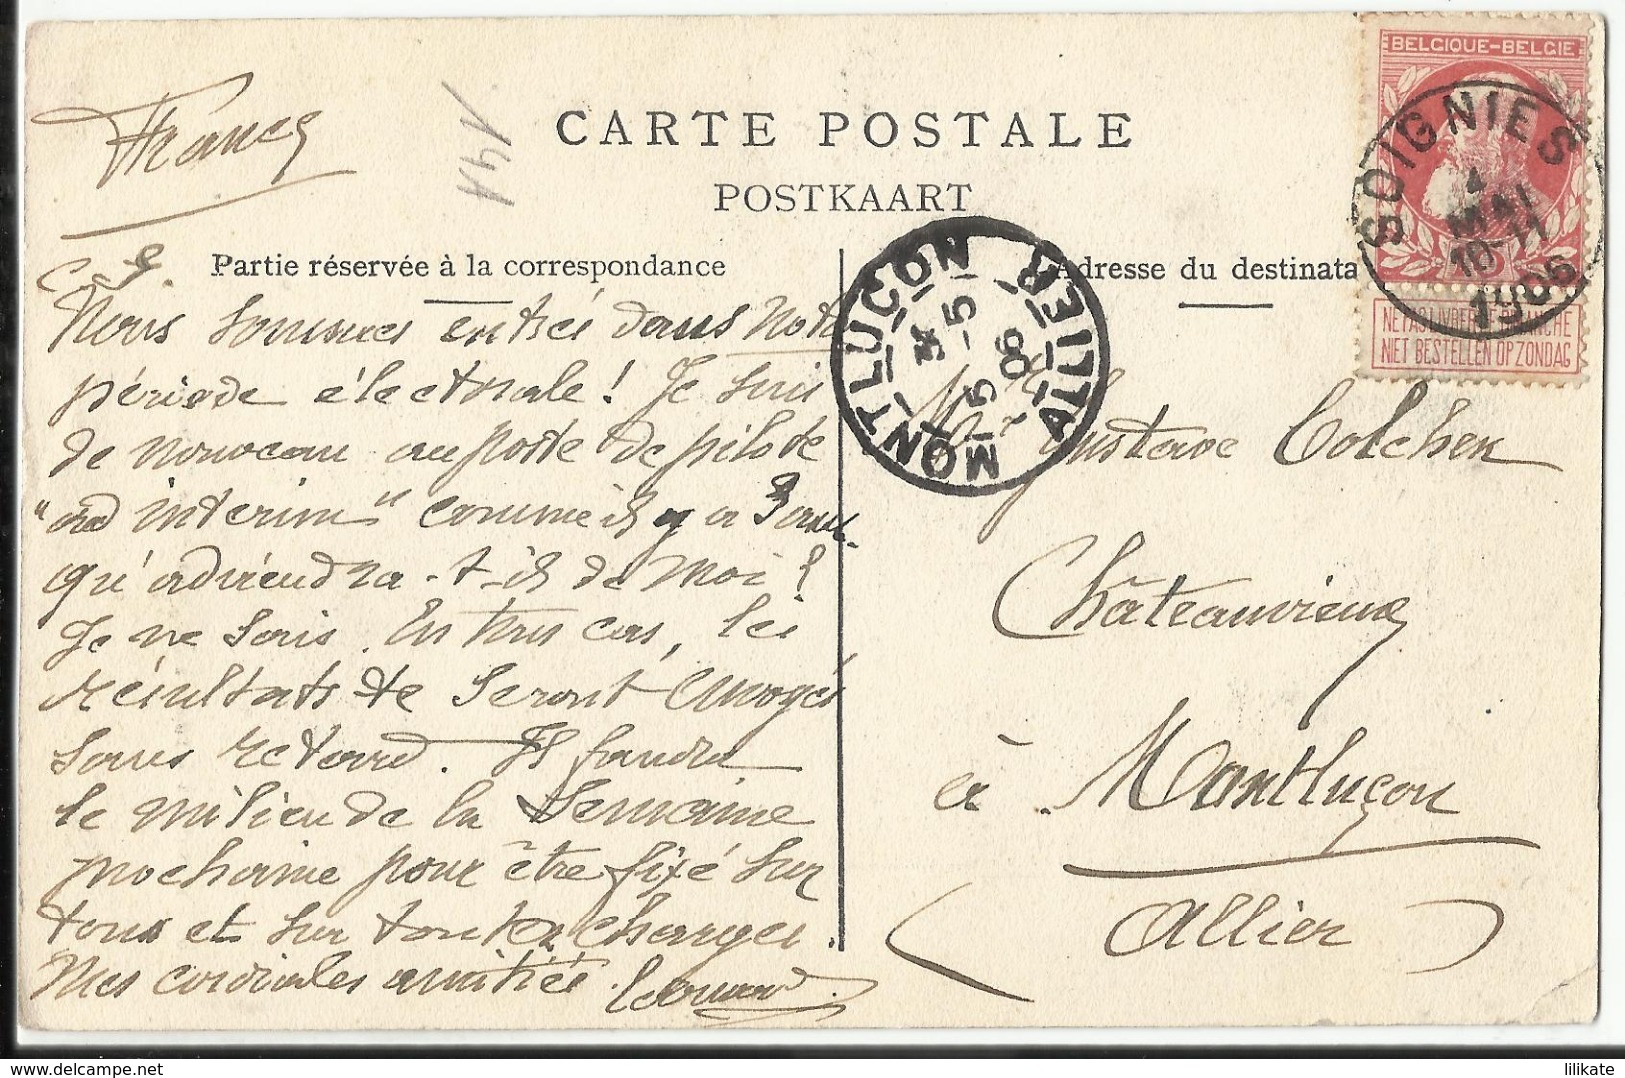 BELGIQUE-BELGIE
SOIGNIES
4
MAI
10-11
1906
NE PAS LIVRER LE DIMANCHE
NIET BESTELLEN OP ZONDAG
France
141
CARTE POSTALE
POSTKAART
Partie réservée à la correspondance
Adresse du destinata
MONTLUCON
ALLIER
5
-5
06
C. G.
Nous sommes entrés dans Notre
période électorale ! Je suis
de nouveau au poste de pilote
"ad interim" comme il y a 3 ans.
qu'adviendra-t-il de moi ?
Je ne sais. En tous cas, les
résultats te seront envoyés
sans retard. Il faudra
le milieu de la semaine
prochaine pour être fixé sur
tous et sur toutes charges.
Mes cordiales amitiés. Léonard
Mr Gustave Colcher
Châteauvieux
à Montluçon
(Allier)
lilikate